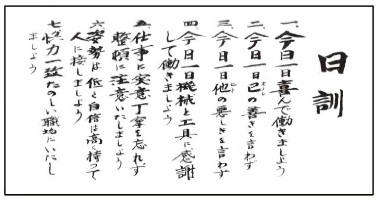 日訓
一、今日一日喜んで働きましよう
二、今日一日己の善きを言わず
三、今日一日他の悪しきを言わず
四、今日一日機械と工具に感謝
して働きましよう
五、仕事に実意丁寧を忘れず
整頓に注意いたしましよう
六、姿勢は低く自信は高く持って
人に接しましよう
七、協力一致たのしい職場にいたし
ましよう